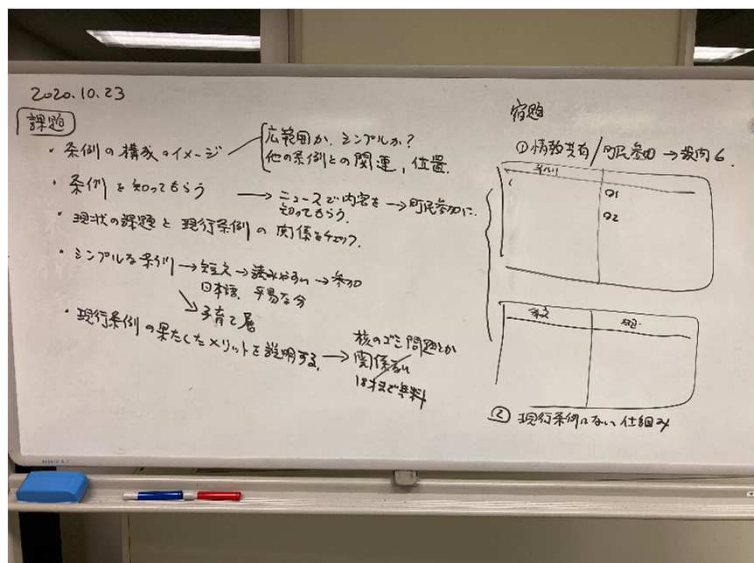 2020.10.23
課題
・条例の構成のイメージ
広範囲か、シンプルか?
他の条例との関連、位置.
・条例を知ってもらう → ニュースで内容を → 町民参加に.
知ってもらう.
・現状の課題と現行条例の関係をチェック.
・シンプルな条例 → 短文 → 読みやすい → 参加
日本語. 平易な文
子育て層
・現行条例の果たしたメリットを説明する. →
核のゴミ問題とか
関係ない
18才まで無料
宿題
① 情報共有/町民参加 →
Q1
Q2
② 現行条例にない仕組み